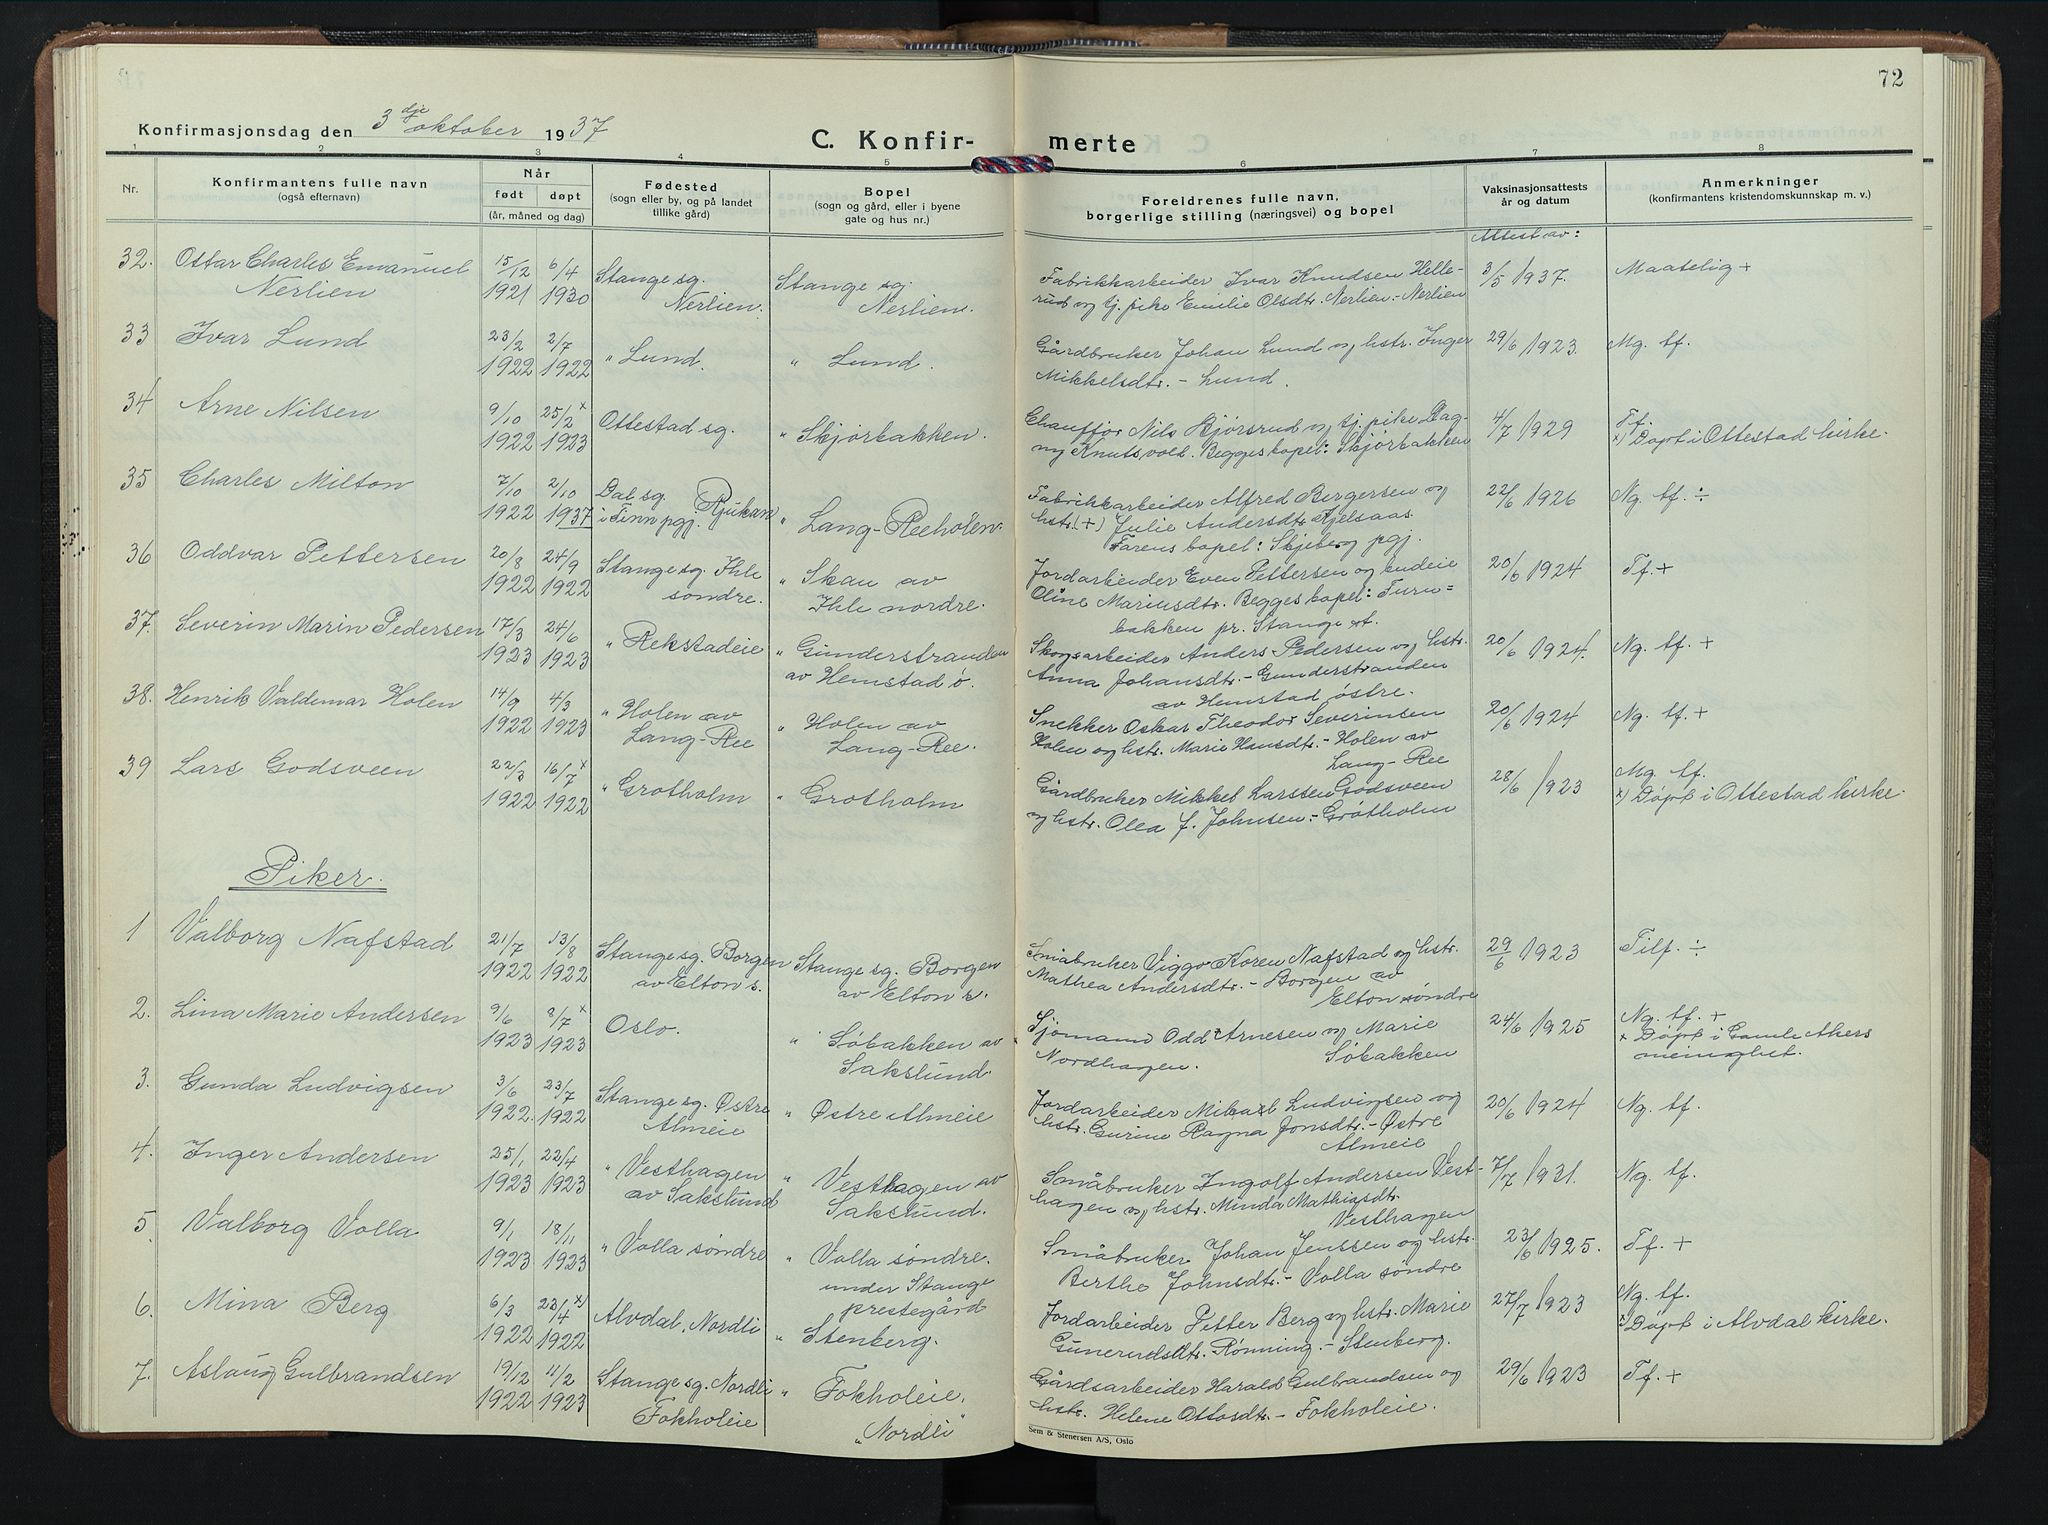 72
Konfirmasjonsdag den 3dje oktober 1937
C. Konfir-
merte
1 2 3 4 5 6 7 8
Nr.
Konfirmantens fulle navn
(også efternavn)
Når
født døpt
(år, måned og dag)
Fødested
(sogn eller by, og på landet
tillike gård)
Bopel
(sogn og gård, eller i byene
gate og hus nr.)
Foreldrenes fulle navn,
borgerlige stilling (næringsvei) og bopel
Vaksinasjonsattests
år og datum
Anmerkninger
(konfirmantens kristendomskunnskap m. v.)
Attest av:
32. Ottar Charles Emanuel
Nerlien
15/12 1921
6/4 1930
Stange sg.
Nerlien.
Stange sg.
Nerlien.
Fabrikkarbeider Ivar Knudsen Helle-
rud og tj. pike Emilie Olsdtr. Nerlien - Nerlien
3/5 1937.
Maatelig +
33 Ivar Lund
23/2 1922
2/7 1922
" Lund.
" Lund.
Gårdbruker Johan Lund og hstr. Inger
Mikkelsdtr. - Lund.
29/6 1923.
Mg. tf.
34 Arne Nilsen
9/10 1922
25/2 x 1923
Ottestad sg.
" Skjørbakken.
Chauffør Nils Bjørsrud og tj. pike Dag-
ny Knutsvolt. Begges bopel: Skjørbakken
4/7 1929
Tf.
x) Døpt i Ottestad kirke.
35 Charles Milton
7/10 1922
2/10 1937
Dal sg. Rjukan
i Tinn pgj.
" Lang-Reeholen.
Fabrikkarbeider Alfred Bergersen og
hstr. (+) Julie Andersdtr. Kjelsaas.
Farens bopel: Skjeberg pgj.
22/6 1926
Ng. tf. ÷
36 Oddvar Pettersen
20/8 1922
24/9 1922
Stange sg. Ihle
søndre.
" Skau av
Ihle nordre.
Jordarbeider Even Pettersen og
Oline Mariusdtr. Begges bopel: Furu=
bakken pr. Stange st.
20/6 1924
Tf. +
37. Severin Marin Pedersen
17/3 1923
24/6 1923
" Rekstadeie
" Gunderstranden
av Hemstad ø.
Skogsarbeider Anders Pedersen og hstr.
Anna Johansdtr. - Gunderstranden
av Hemstad østre.
20/6 1924.
Ng. tf. +
38. Henrik Valdemar Holen
14/9 1922
4/3 1923
" Holen av
Lang-Ree
" Holen av
Lang-Ree.
Snekker Oskar Theodor Severinsen
Holen og hstr. Marie Hansdtr. - Holen av
Lang-Ree
20/6 1924
Ng. tf. +
39 Lars Godsveen
22/3 1922
16/7 x 1922
" Grotholm
" Grotholm
Gårdbruker Mikkel Larssen Godsveen
og hstr. Olea J. Johnsen. - Grøtholm
28/6 1923
Mg. tf.
x) Døpt i Ottestad kirke.
Piker.
1 Valborg Nafstad
21/7 1922
13/8 1922
Stange sg. Borgen
av Elton s.
Stange sg. Borgen
av Elton s.
Småbruker Viggo Koren Nafstad og hstr.
Mathea Andersdtr. - Borgen av
Elton søndre
29/6 1923
Tilf. ÷
2. Lina Marie Andersen
9/6 1923
8/7 x 1923
Oslo.
" Søbakken av
Sakslund.
Sjømann Odd Arnesen og Marie
Nordhagen. Søbakken
24/6 1925
Ng. tf. +
x Døpt i Gamle Akers
meinighet.
3. Gunda Ludvigsen
3/6 1922.
23/7 1922
Stange sg. Østre
Almeie
" Østre Almeie
Jordarbeider Mikael Ludvigsen og
hstr. Gurine Ragna Jonsdtr. - Østre
Almeie
20/6 1924
Ng. tf.
4. Inger Andersen
25/1 1923
22/4 1923
" Vesthagen
av Sakslund
" Vesthagen av
Sakslund.
Småbruker Ingolf Andersen Vest-
hagen og hstr. Minda Mathiasdtr.
Vesthagen
7/7 1931.
Ng. tf.
5. Valborg Volla
9/1 1923
18/11 1923
" Volla søndre
" Volla søndre.
under Stange
prestegård
Småbruker Johan Jenssen og hstr.
Berthe Johnsdtr. - Volla søndre
23/6 1925.
Tf. +
6. Mina Berg
6/3 1922
23/4 x) 1922
Alvdal, Nordli
" Stenberg.
Jordarbeider Petter Berg og hstr. Marie
Gunerudsdtr. Rønning. - Stenberg.
27/7 1923
Ng. tf.
x) Døpt i Alvdal kirke.
7. Aslaug Gulbrandsen
19/12 1922
11/2 1923
Stange sg. Nordli
Fokholeie
" Fokholeie.
"Nordli"
Gårdsarbeider Harald Gulbrandsen og
hstr. Helene Ottosdtr. - Fokholeie.
29/6 1923
Tf. +
Sem & Stenersen A/S, Oslo